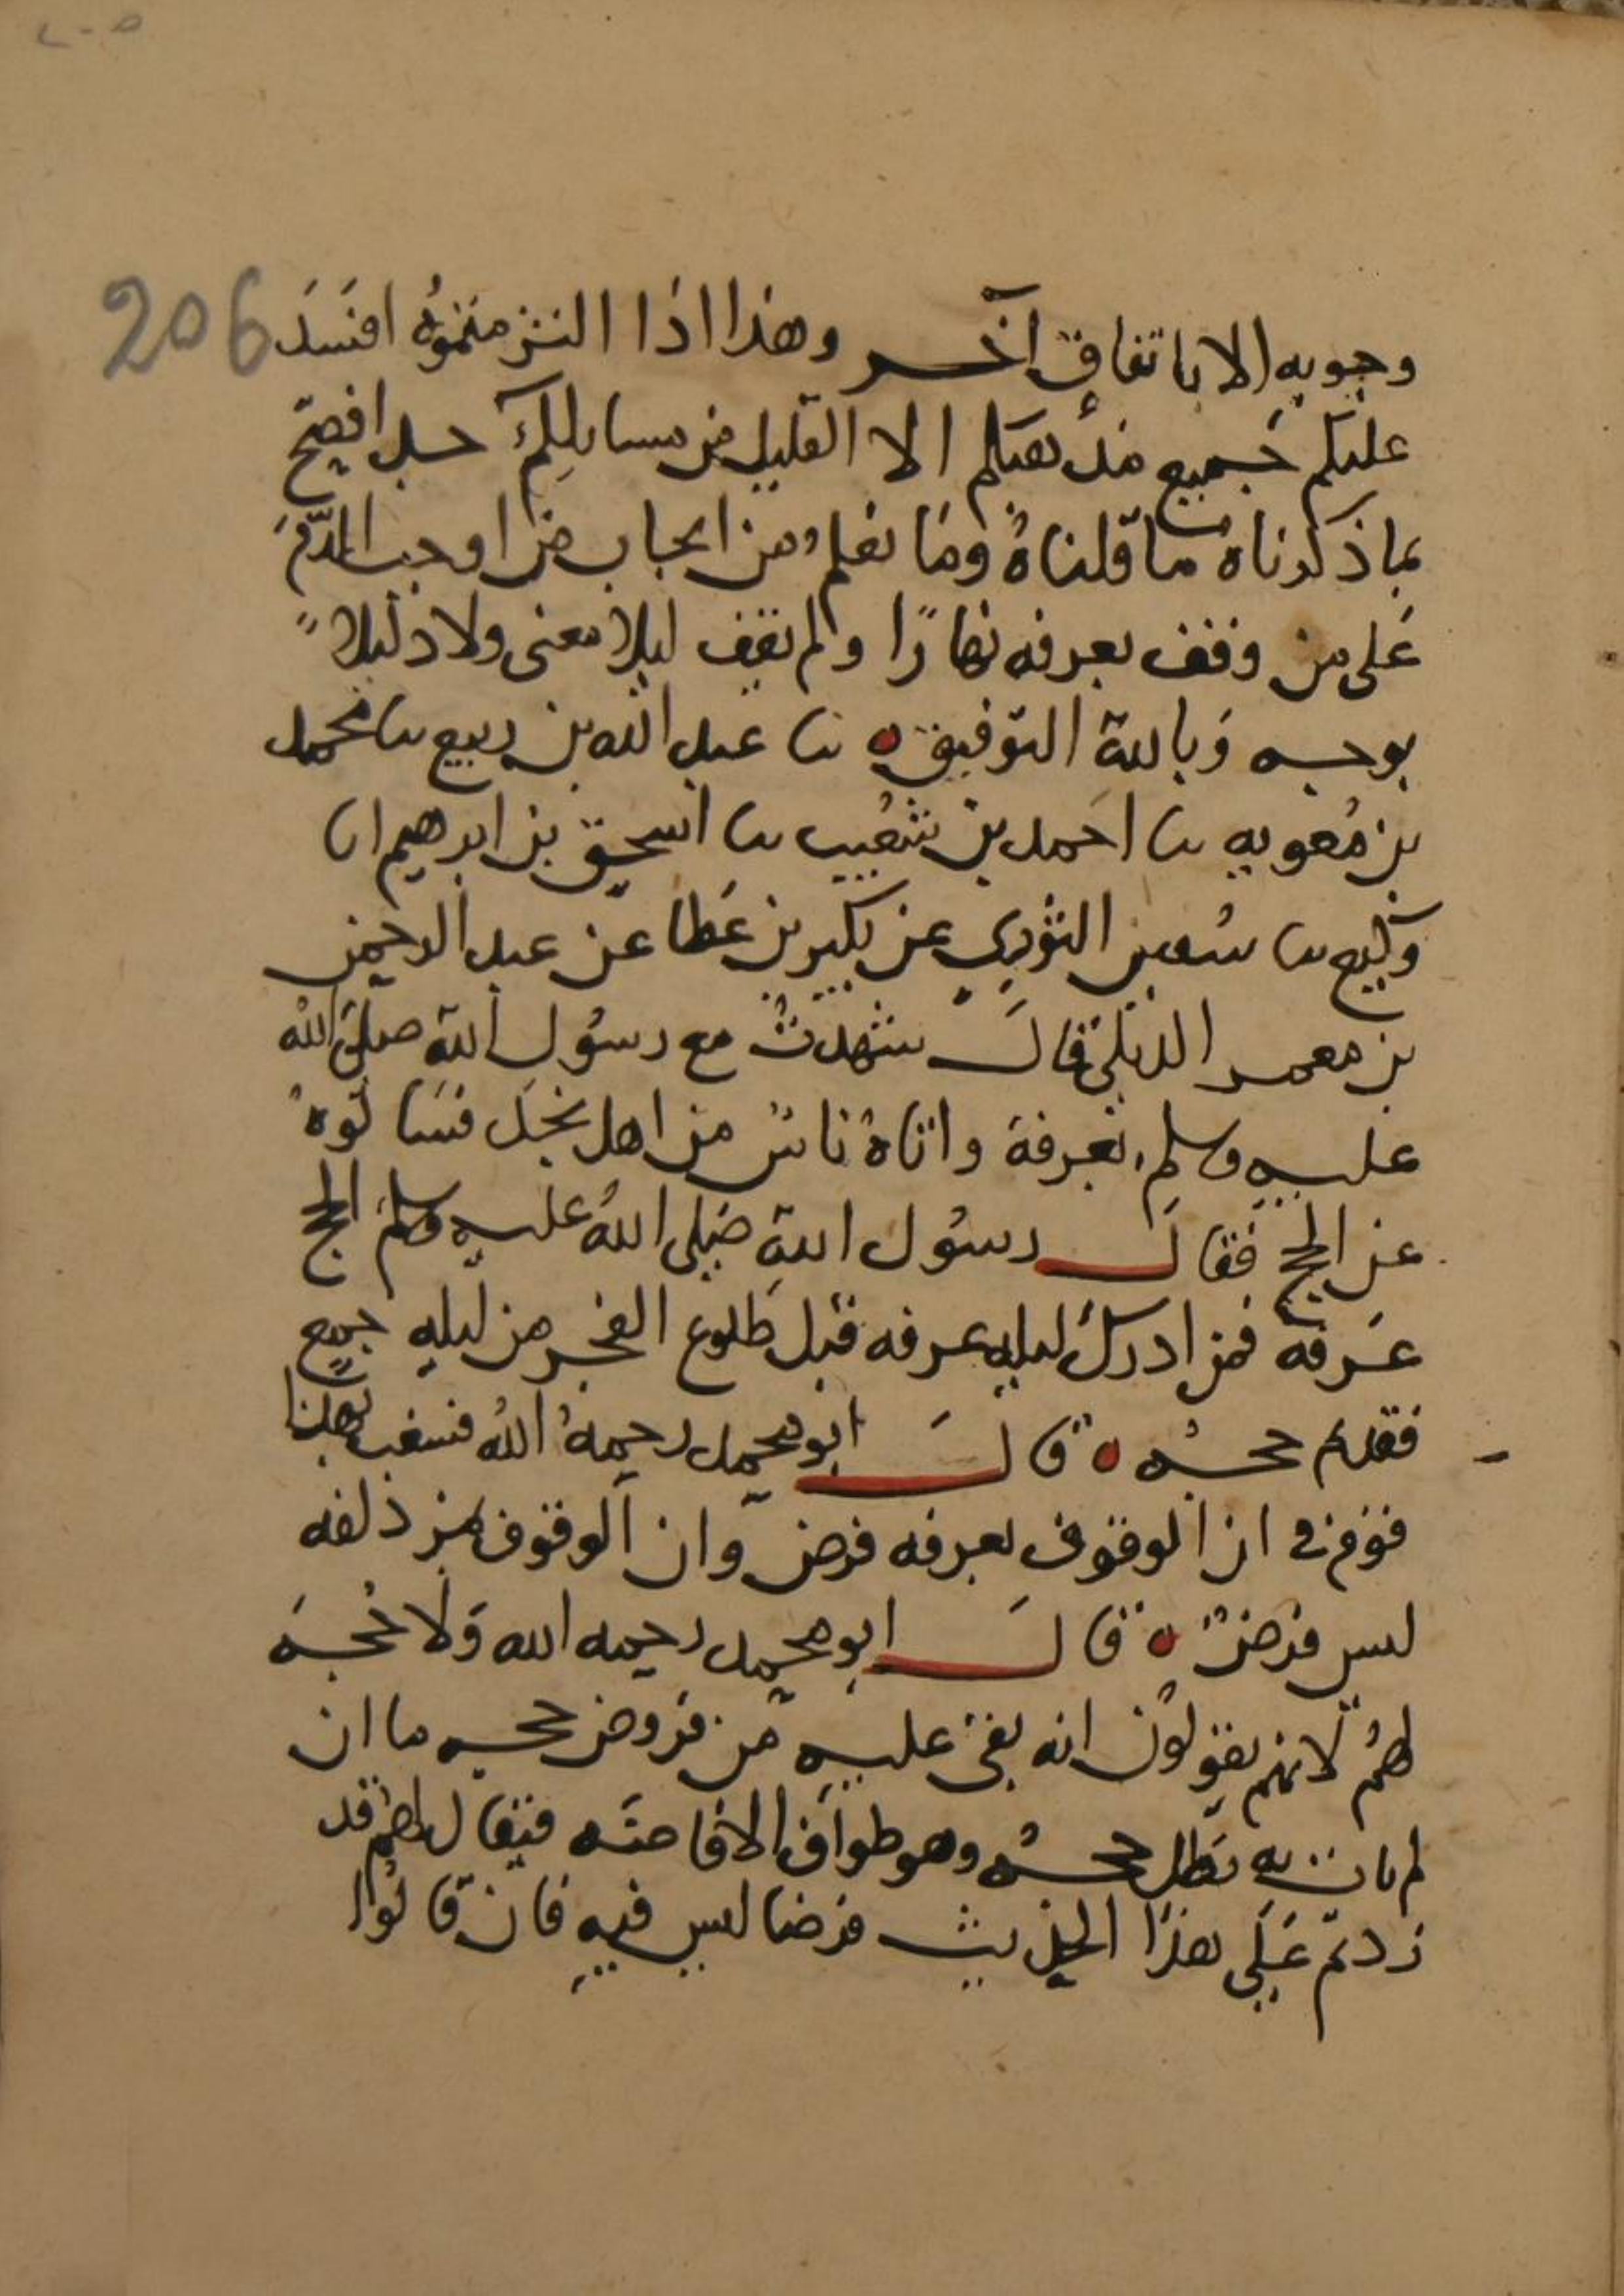 206
وجوبه الا باتفاق آخر وهذا اذا التزمتموه افسد
عليكم جميع مذهبكم الا القليل من مسايلكم جدا فصح
بما ذكرناه ما قلناه وما نعلم لمن ايجاب من اوجب الدم
على من وقف بعرفه نهارا ولم يقف ليلا معنى ولا دليلا
بوجه وبالله التوفيق ه نا عبد الله بن ربيع نا محمد
بن معويه نا احمد بن شعيب نا اسحق بن ابرهيم انا
وكيع نا سفين الثوري عن بكير بن عطا عن عبد الرحمن
بن معمر الديلي قال شهدت مع رسول الله صلى الله
عليه وسلم بعرفة واتاه ناس من اهل نجد فسالوه
عن الحج فقال رسول الله صلى الله عليه وسلم الحج
عرفة فمن ادرك ليله عرفه قبل طلوع الفجر من ليله جمع
فقد تم حجه ه قال ابو محمد رحمه الله فشغب بهذا
قوم في ان الوقوف بعرفه فرض وان الوقوف بمزدلفه
ليس فرضا ه قال ابو محمد رحمه الله ولا حجه
لهم لانهم يقولون انه بقي عليه من فروض حجه ما ان
لم يات به بطل حجه وهو طواف الافاضه فيقال لهم قد
زدتم على هذا الحديث فرضا ليس فيه فان قالوا